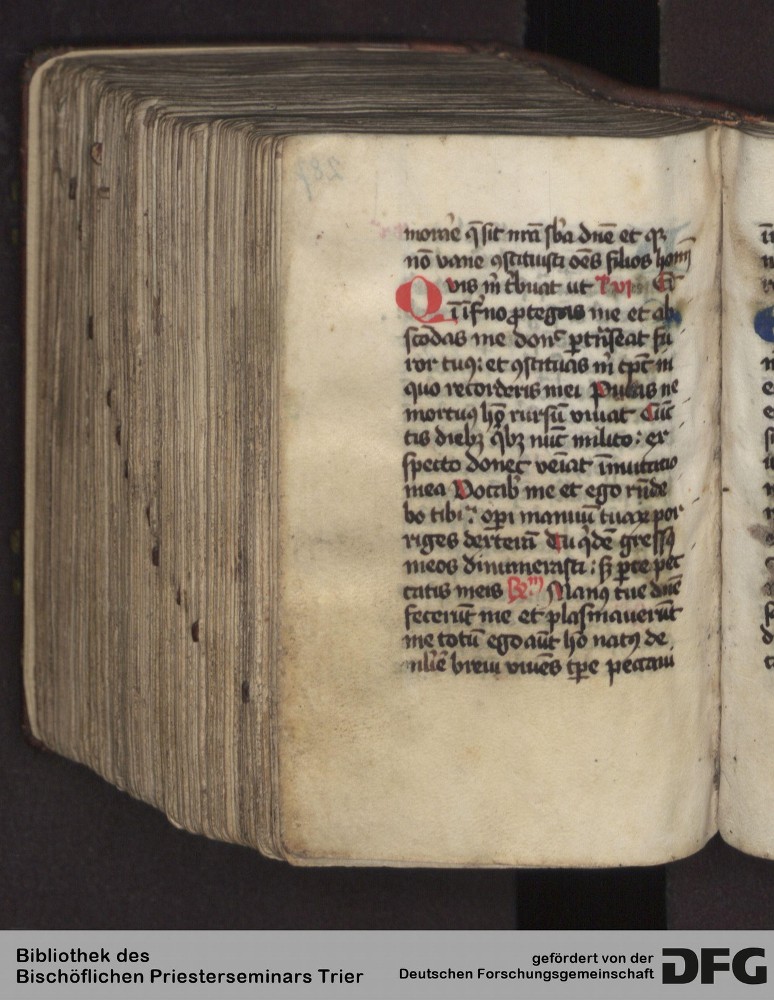 memorie q̄ sit nr̄a sb̄a dn̄e et
nō vane ꝯstituisti oēs filios
Quis m̄ t̓buat ut
ī īf̓no ꝓtegas me et ab
scōdas me donᷤ ꝑtn̄seat fu
ror tuꝰ: et ꝯstituas m̄ tp̄c in
quo recorderis mei Putas ne
mortuꝰ hō rursū viuat Cūc
tis diebꝫ q̓bꝫ nūc milito: ex
specto donec veīat īmutatio
mea Vocab̓ me et ego rn̄de
bo tibi: op̄i manuū tuaꝝ por
riges dexterā Tu q̓dē gressꝰ
meos dinumerasti: sꝫ ꝑce pec
catis meis Manꝰ tue dn̄e
fecerūt me et plasmauerūt
me totū ego aūt hō natꝰ de
breui viuēs tp̄e peccaui
Bibliothek des
Bischöflichen Priesterseminars Trier
gefördert von der
Deutschen Forschungsgemeinschaft
DFG